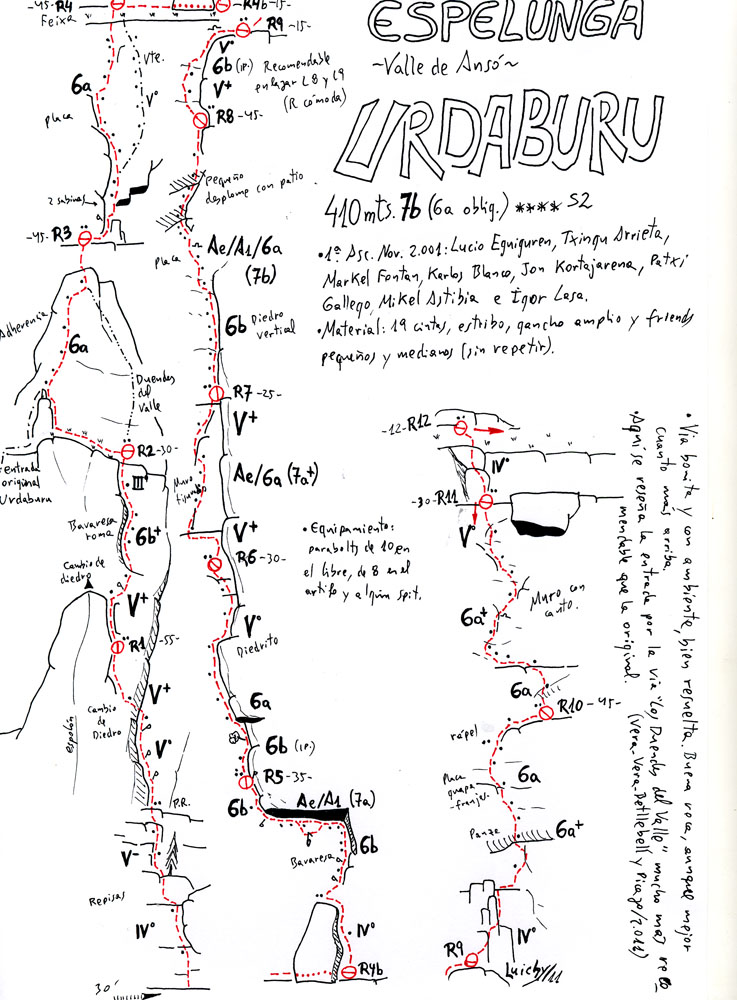 ESPELUNGA
~Valle de Ansó~
URDABURU
410 mts. 7b (6a oblig.) **** S2
•1ª Asc. Nov. 2.001: Lucio Eguiguren, Txingu Arrieta,
Markel Fontan, Karlos Blanco, Jon Kortajarena, Patxi
Gallego, Mikel Astibia e Igor Lasa.
•Material: 19 cintas, estribo, gancho amplio y friends
pequeños y medianos (sin repetir).
-45- R4
Feixa
Vte.
6a
Vº
placa
2 sabinas
-45- R3
Adherencia
6a
Duendes
del
Valle
R2 -30-
entrada
original
Urdaburu
III
Bavaresa
roma
6b+
Cambio de
diedro
V+
R1 -55-
V+
Cambio
de
Diedro
Vº
espolón
P.R.
V-
Repisas
IVº
30'
R4b -15-
R9 -15-
Vº
6b (1P.)
V+
Recomendable
enlazar L8 y L9
(R cómoda)
R8 -45-
pequeño
desplome con patio
Placa
Ae/A1/6a
(7b)
6b
Diedro
vertical
R7 -25-
V+
Muro
Ae/6a (7a+)
V+
R6 -30-
•Equipamiento:
parabolts de 10 en
el libre, de 8 en el
artifo y algún spit.
Vº
Diedrito
6a
6b (1P.)
R5 -35-
6b
Ae/A1 (7a)
Bavaresa
6b
IVº
R4b
-12- R12
IVº
-30- R11
Vº
Muro con
canto.
6a+
6a
R10 -45-
rápel
Placa
guapa
6a
Panza
6a+
IVº
R9
Luichy
•Via bonita y con ambiente, bien resuelta. Buena roca, aunque mejor
cuanto más arriba.
•Aquí se reseña la entrada por la via "Los Duendes del Valle" mucho mas reco-
mendable que la original. (Vera-Vera-Petllebell y Picazo/2.011)